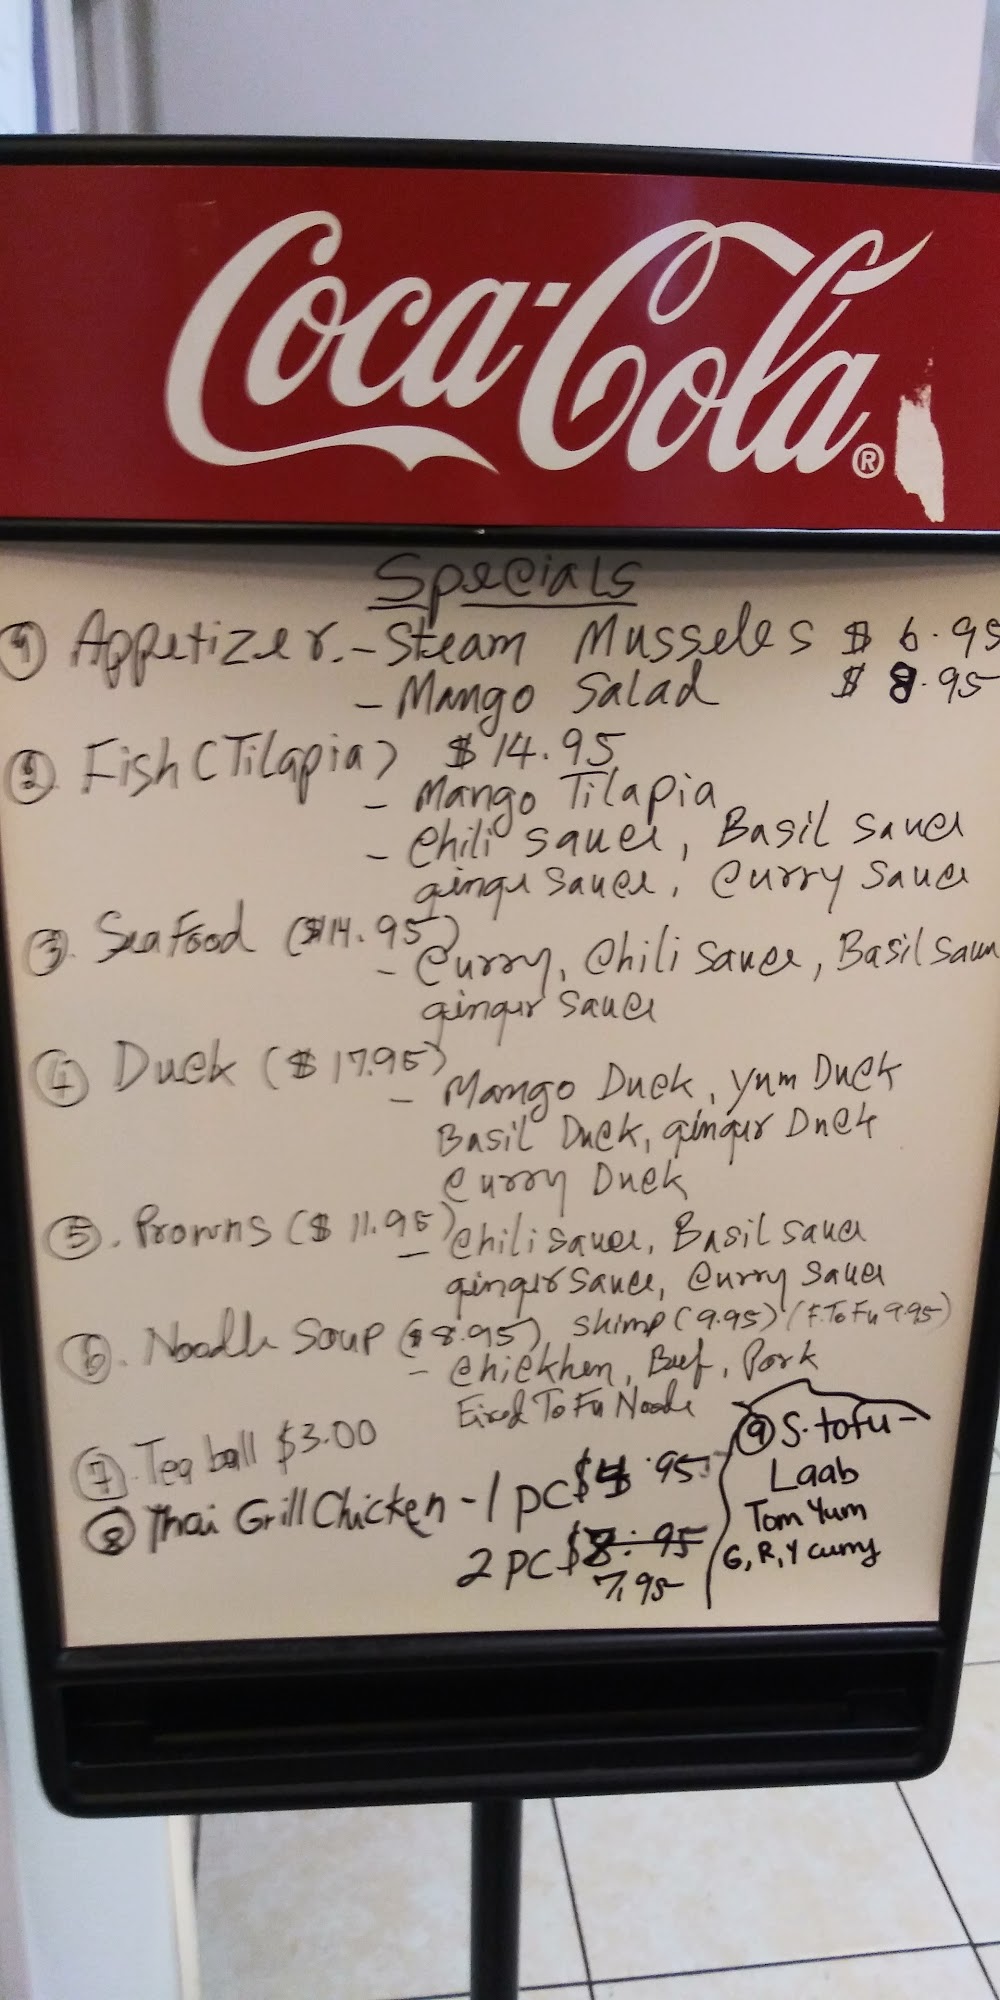 Coca-Cola ®
Specials
① Appetizer. - Steam Musseles $ 6.95
- Mango Salad $ 8.95
② Fish (Tilapia) $14.95
- Mango Tilapia
- Chili sauce, Basil sauce
ginger sauce, Curry sauce
③. Sea Food ($14.95)
- Curry, Chili sauce, Basil sauce
ginger sauce
④ Duck ($17.95)
- Mango Duck, Yum Duck
Basil Duck, ginger Duck
Curry Duck
⑤. Prowns ($11.95)
- Chili sauce, Basil sauce
ginger sauce, Curry sauce
⑥. Noodle Soup ($8.95), Shimp (9.95) (F.ToFu 9.95)
- Chickhen, Beef, Pork
Fixed ToFu Noodle
⑦. Tea ball $3.00
⑧ Thai Grill Chicken - 1 pc $4.95
2 pc $8.95
7.95
⑨ S. tofu -
Laab
Tom Yum
G, R, Y curry